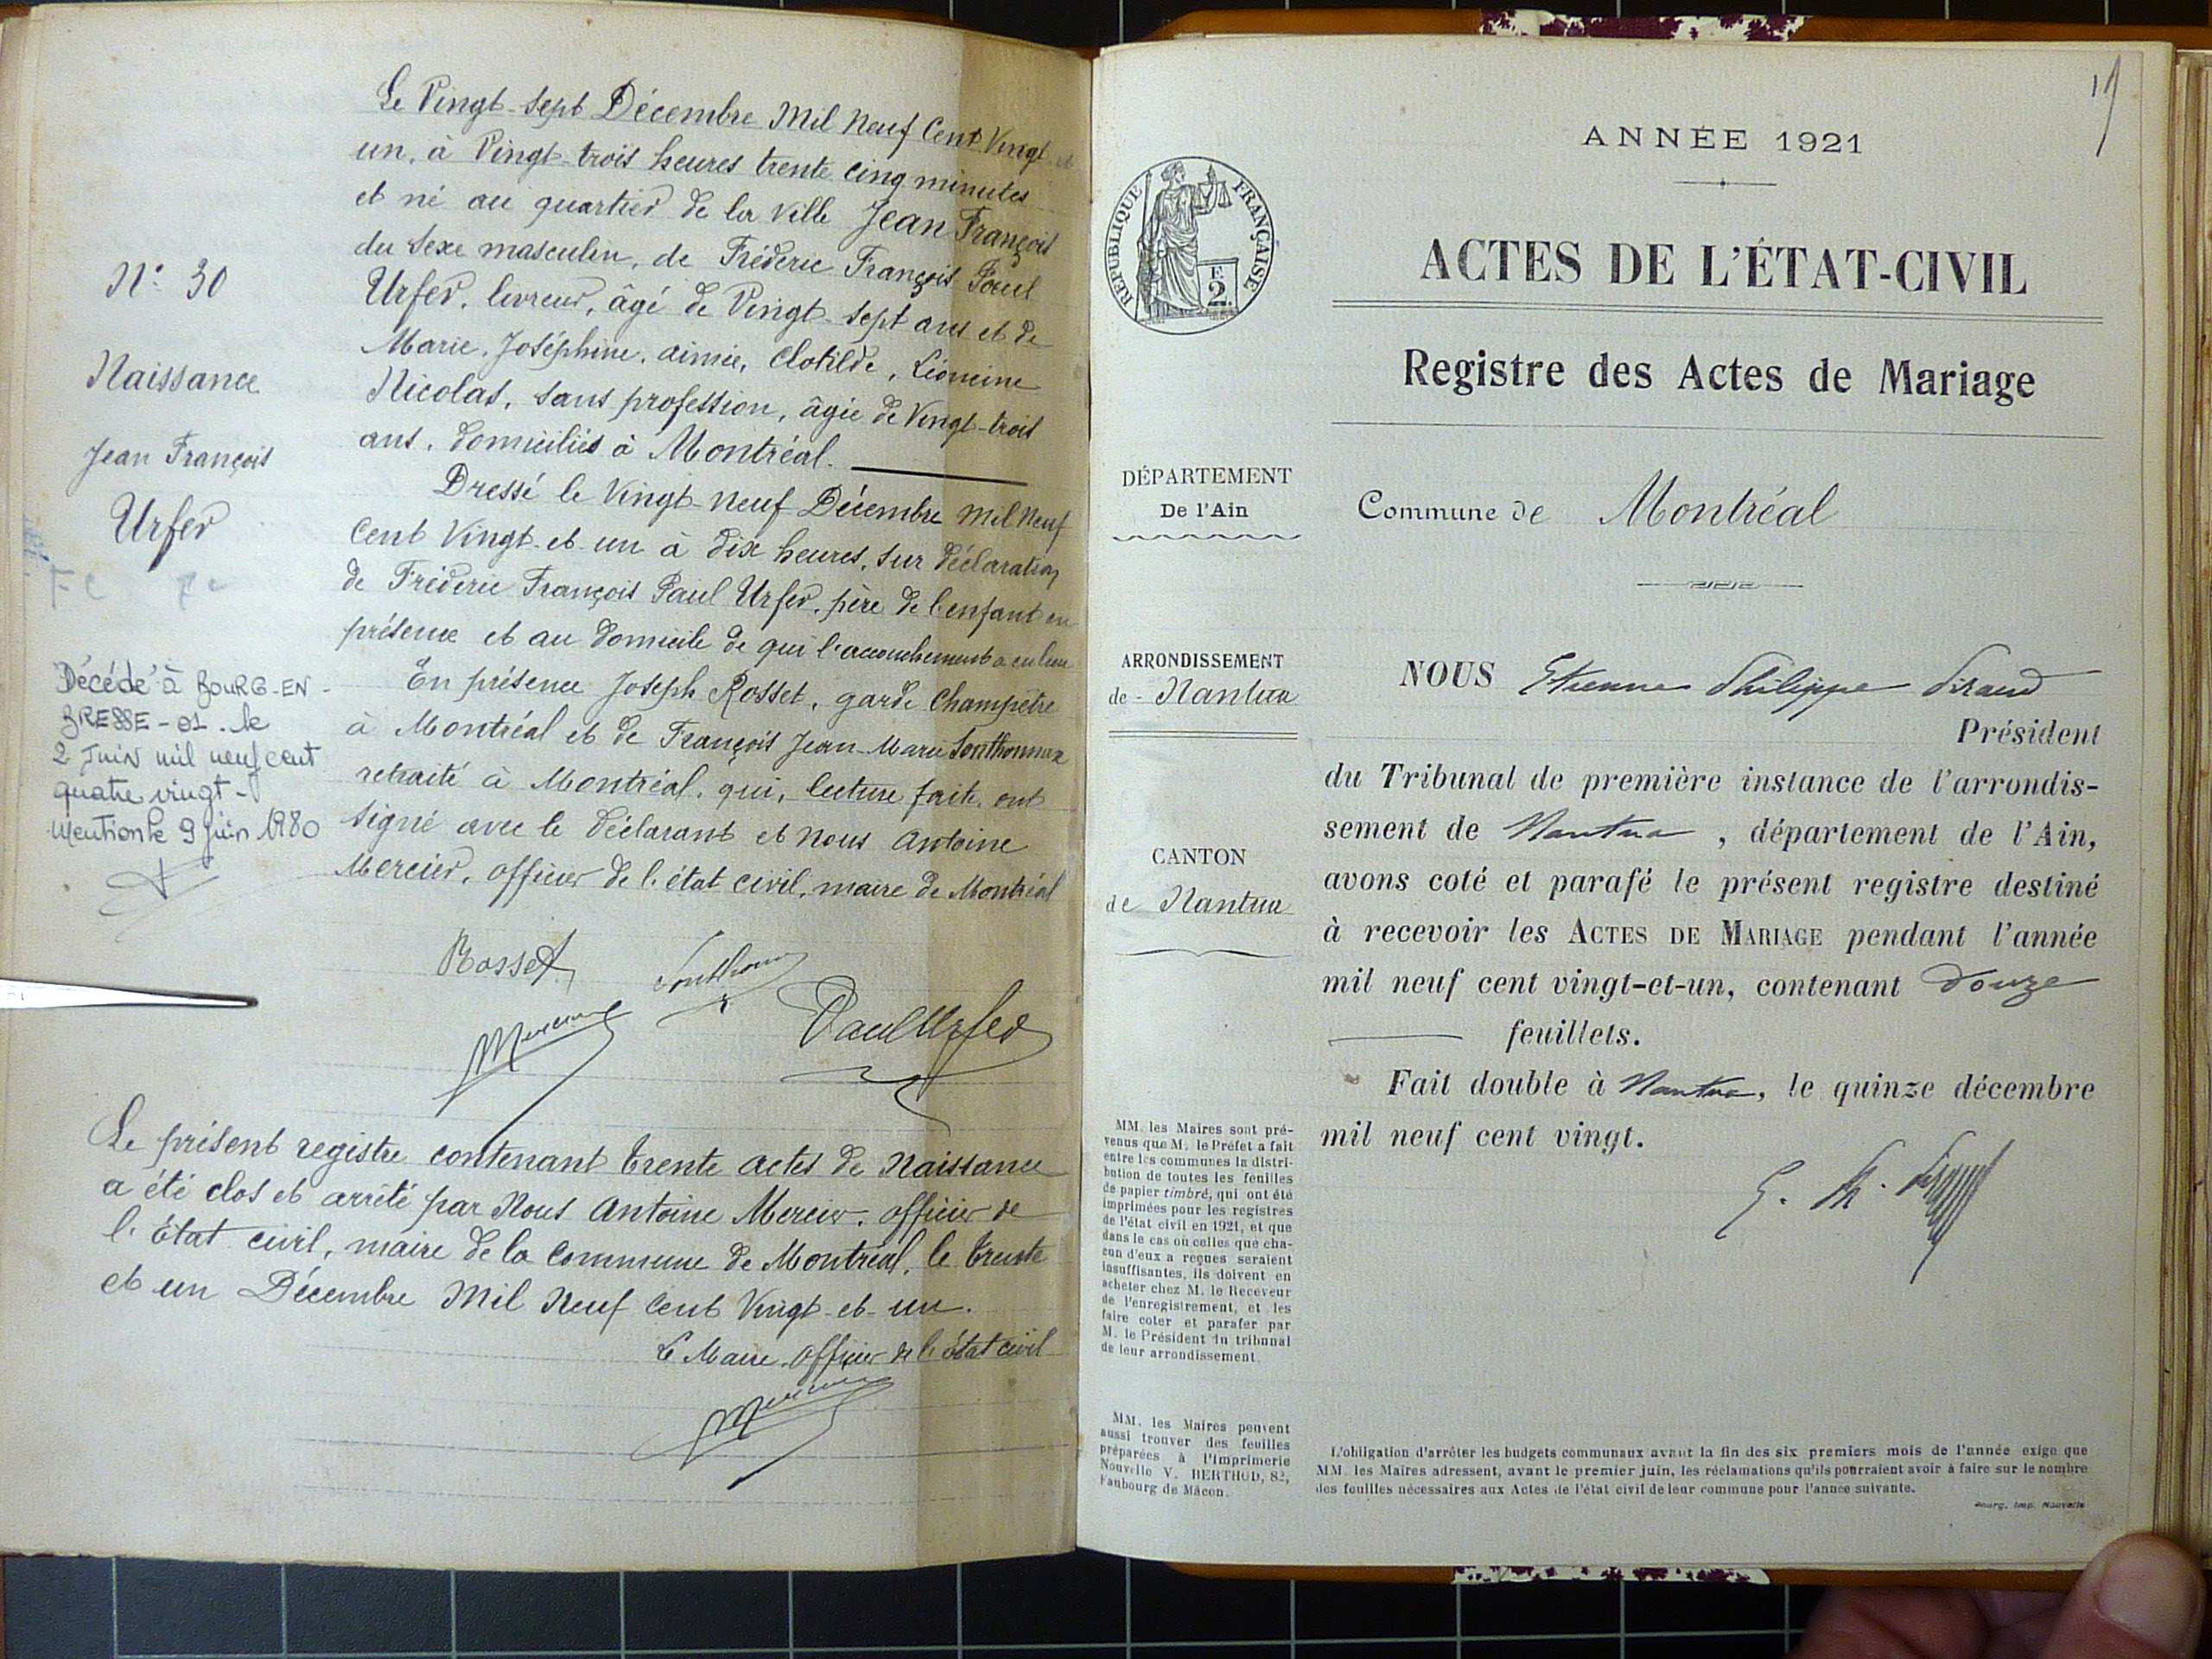 Le Vingt-sept Décembre Mil Neuf Cent Vingt et
un, à Vingt-trois heures trente cinq minutes
et né au quartier de la ville Jean François
du sexe masculin, de Fréderic François Paul
Urfer, livreur, âgé de Vingt-sept ans et de
Marie, Joséphine, aimée, Clotilde, Léonine
Nicolas, sans profession, âgée de Vingt-trois
ans, domiciliés à Montréal.
Dressé le Vingt-neuf Décembre Mil Neuf
Cent Vingt-et-un à dix heures, sur déclaration
de Fréderic François Paul Urfer, père de l'enfant en
présence et au domicile de qui l'accouchement a eu lieu
En présence Joseph Rosset, garde Champêtre
à Montréal et de François Jean-Marie Sonthonnax
retraité à Montréal, qui, lecture faite, ont
signé avec le déclarant et nous Antoine
Mercier, officier de l'état civil, maire de Montréal
N° 30
Naissance
Jean François
Urfer
Décédé à BOURG-EN-
BRESSE-01. le
2 Juin mil neuf cent
quatre vingt-
Mention le 9 juin 1980
Rosset Sonthonnax
Mercier Paul Urfer
Le présent registre contenant trente actes de Naissance
a été clos et arrêté par Nous Antoine Mercier, officier de
l'État civil, maire de la Commune de Montréal, le trente
et un Décembre Mil Neuf Cent Vingt-et-un.
Le Maire, officier de l'état civil
Mercier
19
ANNÉE 1921
RÉPUBLIQUE FRANÇAISE
F.
2
ACTES DE L'ÉTAT-CIVIL
Registre des Actes de Mariage
DÉPARTEMENT
De l'Ain
ARRONDISSEMENT
de - Nantua
CANTON
de Nantua
Commune de Montréal
NOUS Etienne Philippe Siraud
Président
du Tribunal de première instance de l'arrondis-
sement de Nantua, département de l'Ain,
avons coté et parafé le présent registre destiné
à recevoir les ACTES DE MARIAGE pendant l'année
mil neuf cent vingt-et-un, contenant douze
feuillets.
Fait double à Nantua, le quinze décembre
mil neuf cent vingt.
E. Ph. Siraud
MM. les Maires sont pré-
venus que M. le Préfet a fait
entre les communes la distri-
bution de toutes les feuilles
de papier timbré, qui ont été
imprimées pour les registres
de l'état civil en 1921, et que
dans le cas où celles que cha-
cun d'eux a reçues seraient
insuffisantes, ils doivent en
acheter chez M. le Receveur
de l'enregistrement, et les
faire coter et parafer par
M. le Président du tribunal
de leur arrondissement.
MM. les Maires peuvent
aussi trouver des feuilles
préparées à l'Imprimerie
Nouvelle V. BERTHOD, 82,
Faubourg de Mâcon.
L'obligation d'arrêter les budgets communaux avant la fin des six premiers mois de l'année exige que
MM. les Maires adressent, avant le premier juin, les réclamations qu'ils pourraient avoir à faire sur le nombre
des feuilles nécessaires aux Actes de l'état civil de leur commune pour l'année suivante.
Bourg, Imp. Nouvelle